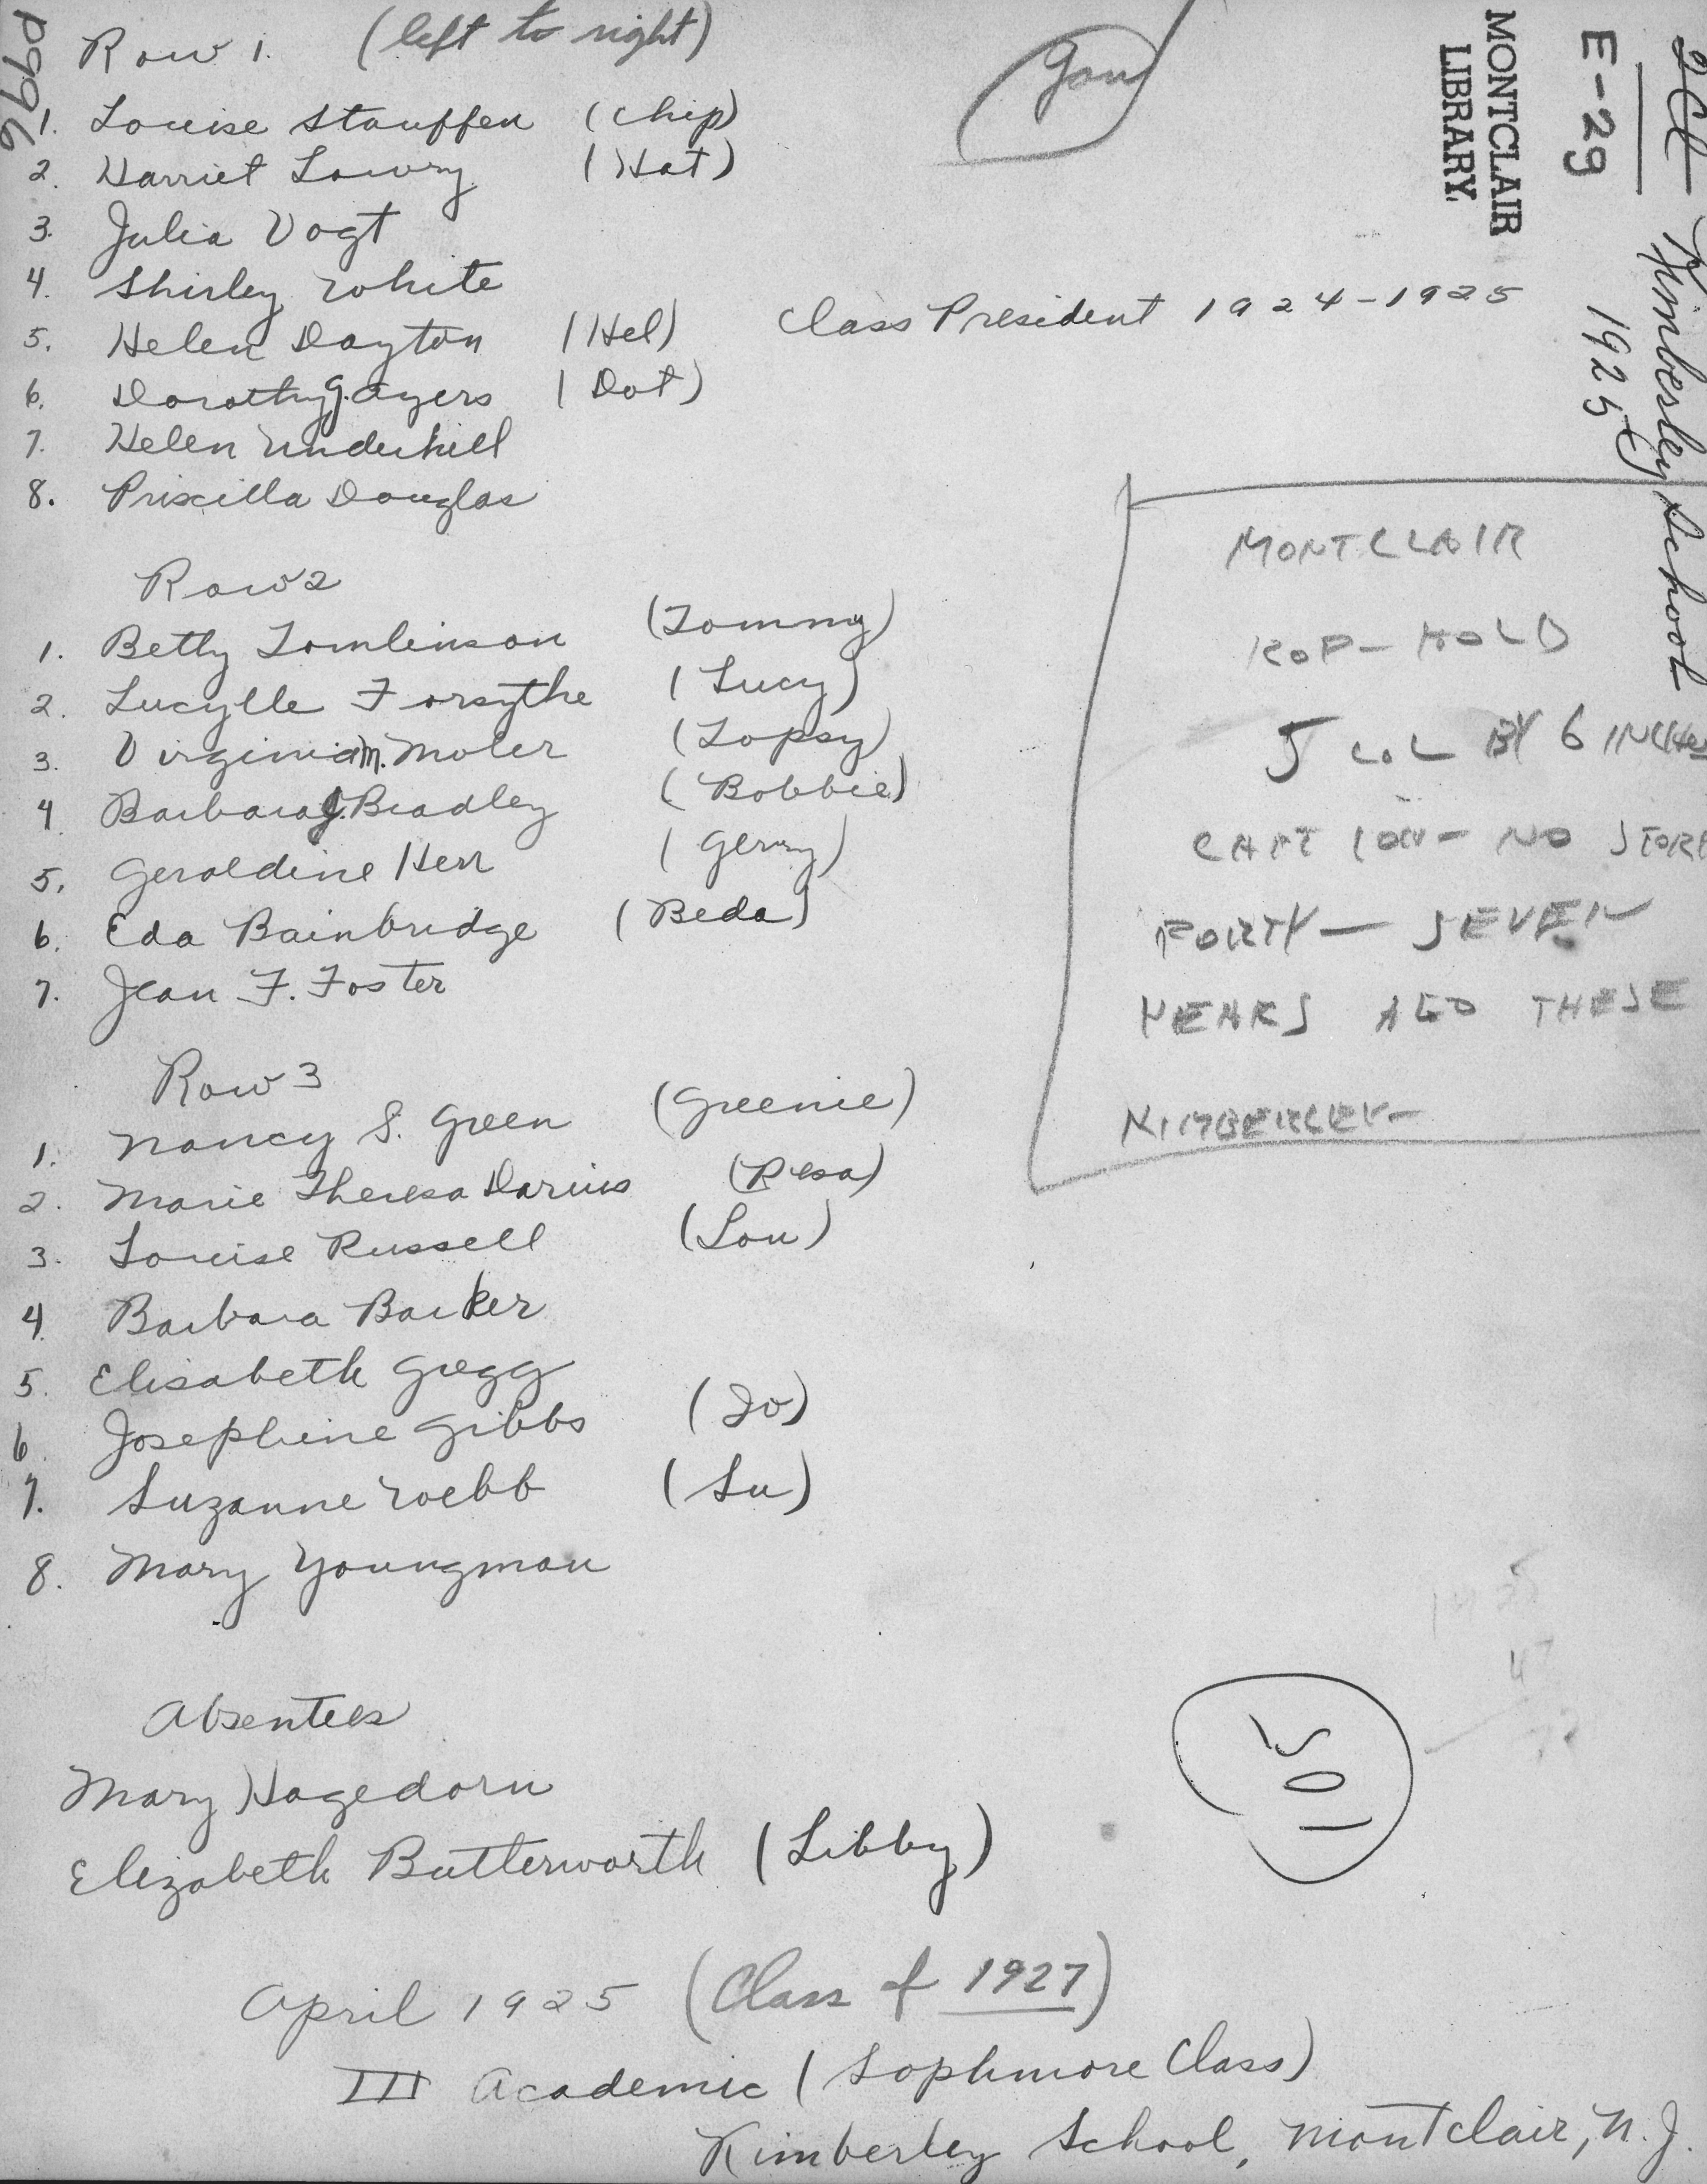 Row 1. (left to right)
1. Louise Stauffen (Chip)
2. Harriet Lowry (Hat)
3. Julia Vogt
4. Shirley White
5. Helen Dayton (Hel) Class President 1924-1925
6. Dorothy G. Ayers (Dot)
7. Helen Underhill
8. Priscilla Douglas
Row 2
1. Betty Tomlinson (Tommy)
2. Lucylle Forsythe (Lucy)
3. Virginia M. Moler (Topsy)
4. Barbara J. Bradley (Bobbie)
5. Geraldine Herr (Gerry)
6. Eda Bainbridge (Beda)
7. Jean F. Foster
Row 3
1. Nancy S. Green (Greenie)
2. Marie Theresa Darius (Resa)
3. Louise Russell (Lou)
4. Barbara Barker
5. Elisabeth Gregg
6. Josephine Gibbs (Jo)
7. Suzanne Webb (Su)
8. Mary Youngman
Absentees
Mary Hagedorn
Elizabeth Butterworth (Libby)
April 1925 (Class of 1927)
III Academic (Sophmore Class)
Kimberley School, Montclair, N.J.
P996
MONTCLAIR
LIBRARY.
E-29
Kimberley School
1925
MONTCLAIR
ROP - HOLD
5 COL BY 6 INCHES
CAPTION - NO STORY
FORTY - SEVEN
YEARS AGO THESE
KIMBERLEY -
105